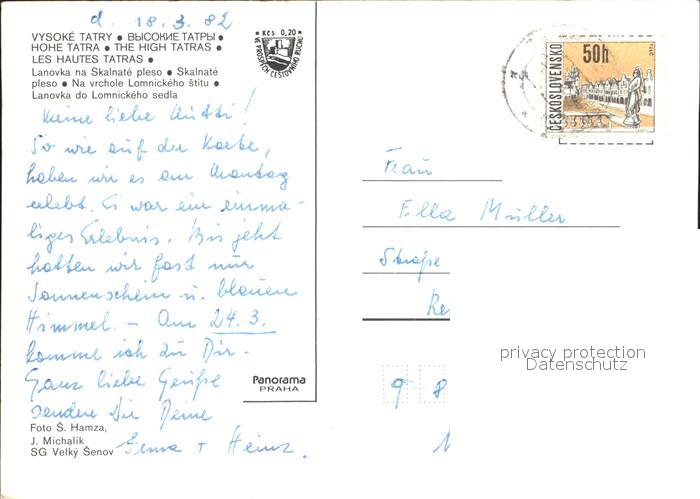 d. 18.3.82
VYSOKÉ TATRY ● ВЫСОКИЕ ТАТРЫ ●
HOHE TATRA ● THE HIGH TATRAS ●
LES HAUTES TATRAS ●
Lanovka na Skalnaté pleso ● Skalnaté
pleso ● Na vrchole Lomnického štítu ●
Lanovka do Lomnického sedla
Kčs 0,20
VE PROSPĚCH CESTOVNÍHO RUCHU
Meine liebe Mutti!
So wie auf der Karte,
haben wir es am Montag
erlebt. Es war ein einma-
liges Erlebnis. Bis jetzt
hatten wir fast nur
Sonnenschein u. blauen
Himmel. – Am 24.3.
komme ich zu Dir.
Ganz liebe Grüße
senden Dir Deine
+ Heinz.
Foto Š. Hamza,
J. Michalík
SG Velký Šenov
Panorama
PRAHA
ČESKOSLOVENSKO
50h
TELČ
Frau
Ella Müller
Straße
Re
9 8
privacy protection
Datenschutz